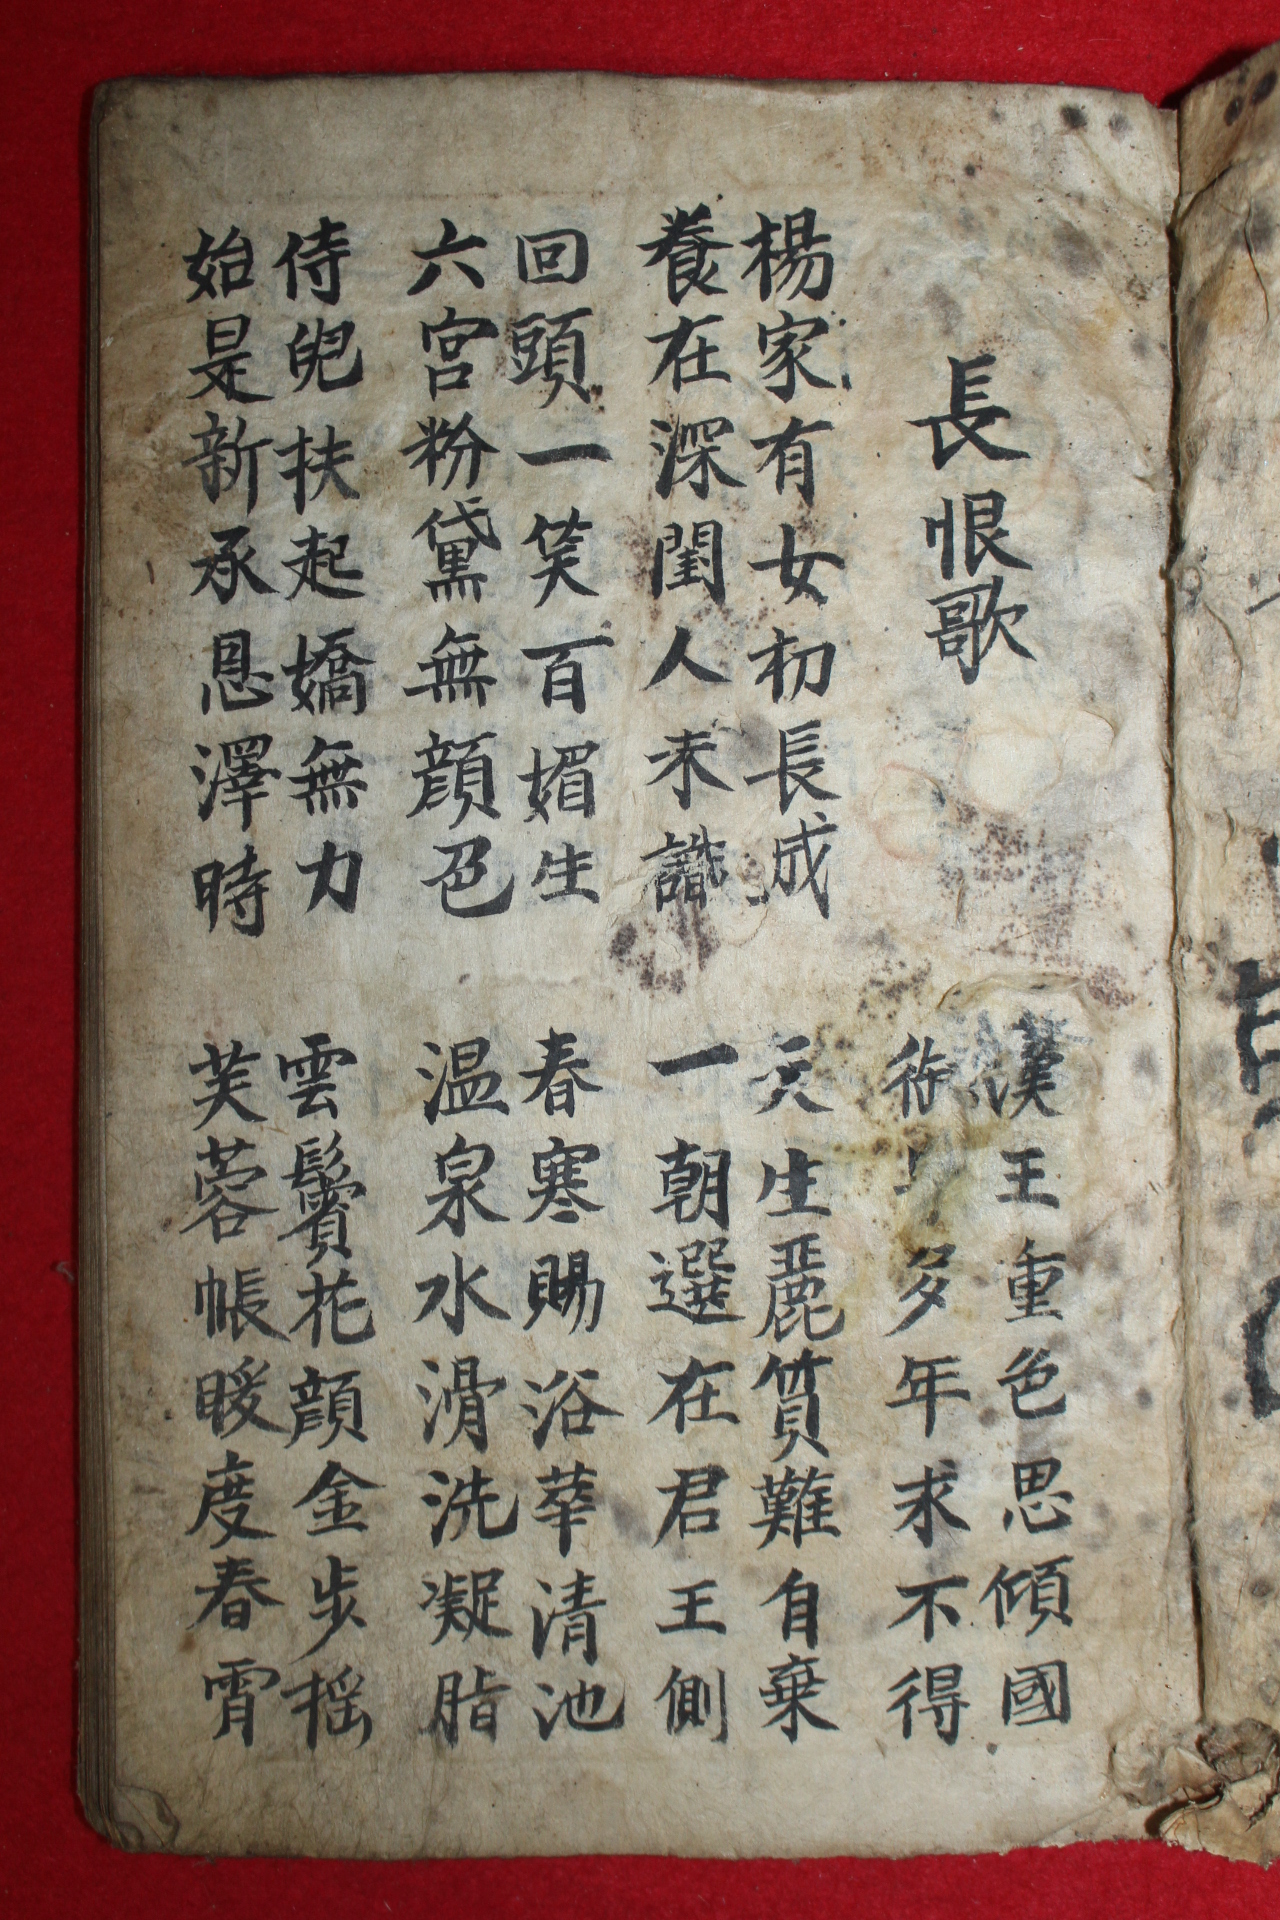 長恨歌
漢王重色思傾國
御多年求不得
楊家有女初長成
養在深閨人未識
天生麗質難自棄
一朝選在君王側
回頭一笑百媚生
六宮粉黛無顔色
春寒賜浴華清池
温泉水滑洗凝脂
侍兒扶起嬌無力
始是新承恩澤時
雲鬢花顔金步搖
芙蓉帳暖度春霄